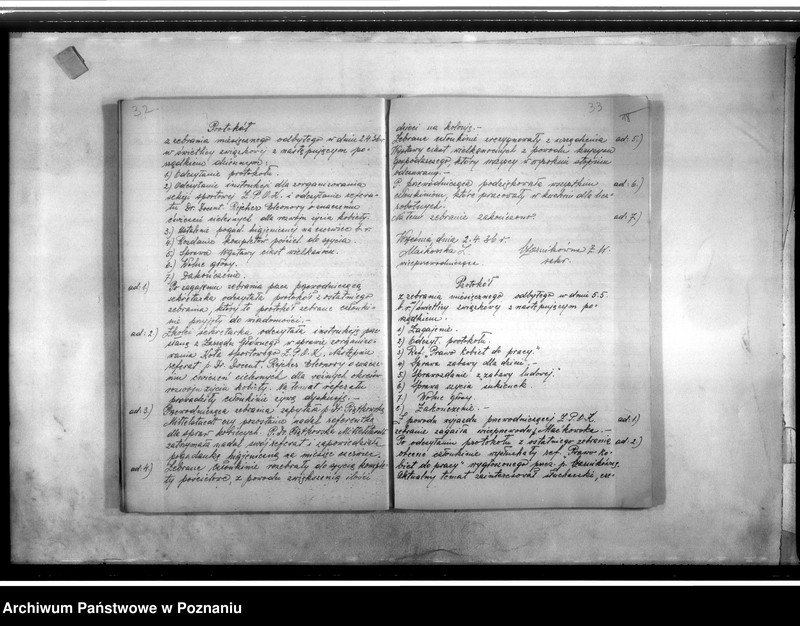 32
Protokół
z zebrania miesięcznego odbytego w dniu 2.4.36 r.
w świetlicy związkowej z następującym po-
rządkiem dziennym:
1) Odczytanie protokołu.
2) Odczytanie instrukcji dla zorganizowania
sekcji sportowej Z.P.O.K. i odczytanie refera-
tu Dr. Docent. Rejcher Eleonory o znaczeniu
ćwiczeń cielesnych dla rozwoju życia kobiety.
3) Ustalenie pogad. higienicznej na czerwiec b.r.
4) Oddanie kompletów pościel. do szycia.
5) Sprawa Wystawy szkół wielkańców.
6) Wolne głosy.
7) Zakończenie.
ad. 1) Po zagajeniu zebrania przez przewodniczącą
sekretarka odczytała protokół z ostatniego
zebrania, który to protokół zebrane członki-
nie przyjęły do wiadomości.-
ad. 2) sekretarka odczytała instrukcję prze-
słaną z Zarządu Głównego w sprawie zorganizo-
wania Koła Sportowego Z.P.O.K. Następnie
referat p. Dr. Docent. Rejcher Eleonory o znacze-
niu ćwiczeń cielesnych dla różnych okresów
rozwoju życia kobiety. Na temat referatu
prowadziły członkinie żywą dyskusję.-
ad. 3) Przewodnicząca zebrania zapytała p. Dr.
Mittelstaedt czy pozostanie nadal referentką
dla spraw kobiecych. P. Dr. Mittelstaedt
zatrzymała nadal swój referat i zapowiedziała
pogadankę higieniczną na miesiąc czerwiec.
ad. 4) Zebrane członkinie rozebrały do szycia komple-
ty pościelowe, z powodu zwiększenia ilości
33
dzieci na kolonję.-
Zebrane członkinie zrezygnowały z urządzenia ad. 5.)
Wystawy szkół z powodu kryzysu
gospodarczego, który wszyscy w wysokim stopniu
odczuwają.-
P. przewodnicząca podziękowała wszystkim ad. 6.)
członkiniom, które pracowały w kuchni dla bez-
robotnych.
Na tem zebranie zakończono. ad. 7.)
Września dnia 2.4.36 r.
Maćkowska Z. W.
wiceprzewodnicząca. sekr.
Protokół
z zebrania miesięcznego odbytego w dniu 5.5.
b.r. w świetlicy związkowej z następującym po-
rządkiem.
1) Zagajenie.
2) Odczyt. protokołu.
3) Ref. "Prawo kobiet do pracy."
4) Sprawa zabawy dla dzieci.-
5) Sprawozdanie z zabawy ludowej.
6) Sprawa szycia sukienek.
7) Wolne głosy.
8) Zakończenie.-
Z powodu wyjazdu przewodniczącej Z.P.O.K. ad. 1)
zebranie zagaiła wiceprzewodn. Maćkowska.-
Po odczytaniu protokołu z ostatniego zebrania ad. 2)
obecne członkinie wysłuchały ref. "Prawo ko-
biet do pracy" wygłoszonego przez p.
Aktualny temat zainteresował słuchaczki, co-
Archiwum Państwowe w Poznaniu